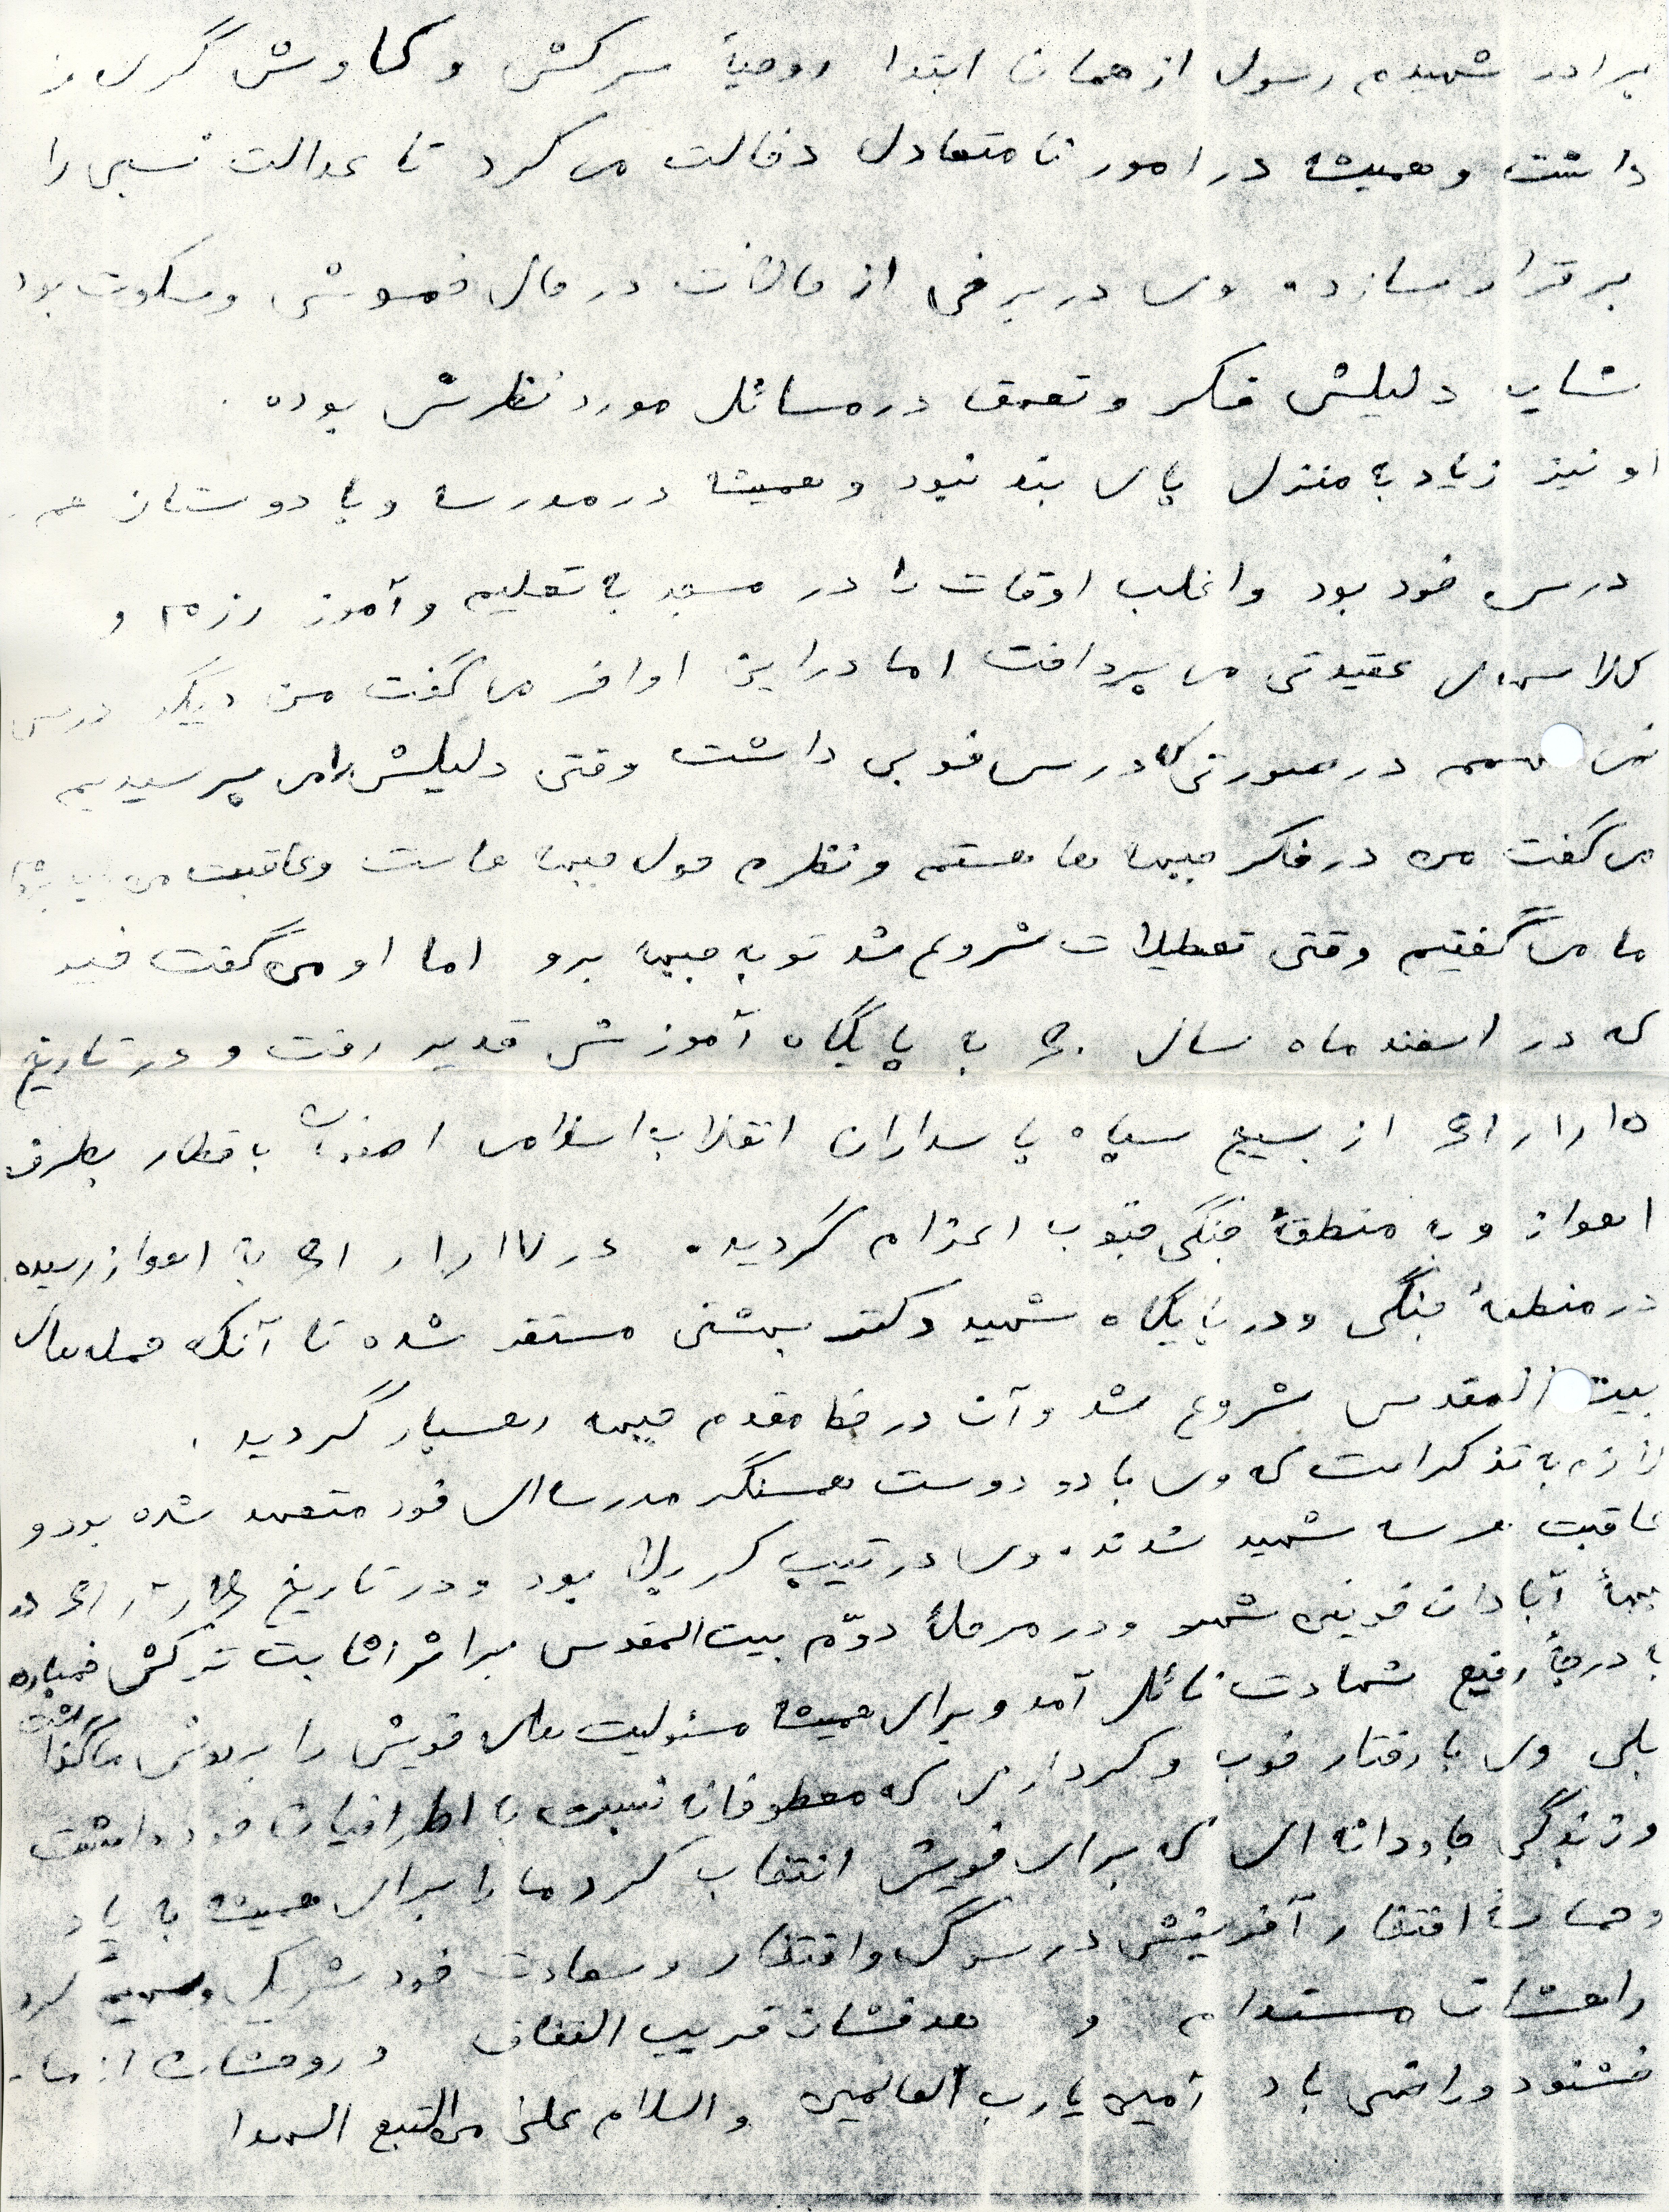 برادر شهیدم رسول از همان ابتدا روحیهٔ سرکش و کاوش گری
داشت و همیشه در امور نامتعادل دخالت می کرد تا عدالت نسبی را
برقرار سازد. وی در برخی از حالات در حال خموشی و سکوت بود
شاید دلیلش فکر و تعمق در مسائل مورد نظرش بوده.
او نیز زیاد به منزل پای بند نبود و همیشه در مدرسه و با دوستان هم
درس خود بود و اغلب اوقات را در مسجد به تعلیم و آموز رزم و
کلاسهای عقیدتی می پرداخت اما در این اواخر می گفت من دیگر درس
در صورتی که درس خوبی داشت وقتی دلیلش را می پرسیدیم
می گفت من در فکر جبهه ها هستم و نظرم حول جبهه هاست و عاقبت من
ما می گفتیم وقتی تعطیلات شروع شد تو به جبهه برو اما او می گفت
که در اسفند ماه سال ۶۰ به پایگاه آموزشی غدیر رفت و در تاریخ
۶۱/۱/۱۵ از بسیج سپاه پاسداران انقلاب اسلامی اصفهان با قطار بطرف
اهواز و به منطقهٔ جنگی جنوب اعزام گردید. در ۶۱/۱/۱۷ به اهواز رسیده
در منطقهٔ جنگی و در پایگاه شهید دکتر بهشتی مستقر شده تا آنکه حمله های
بیت المقدس شروع شد و آن در خط مقدم جبهه رهسپار گردید.
لازم به تذکر است که وی با دو دوست همسنگر مدرسه ای خود متعهد شده بود و
عاقبت هر سه شهید شدند. وی در تیپ کربلا بود و در تاریخ در
جبههٔ آبادان خونین شهر و در مرحلهٔ دوّم بیت المقدس بر اثر اثابت ترکش خمپاره
با درجهٔ رفیع شهادت نائل آمد و برای همیشه مسئولیت های خویش را بر دوش ما گذاشت
بلی وی با رفتار خوب و کردارهای که معطوفانه نسبت به اطرافیان خود داشت
و زندگی جاودانه ای که برای خویش انتخاب کرد ما را برای همیشه به یاد
و حماسهٔ افتخار آفرینش در سوگ و افتخار و سعادت خود شریک و سهیم کرد
راهشان مستدام و هدفشان قریب و روحشان از ما
خشنود و راضی باد آمین یا رب العالمین والسلام علی من التبع الهدا